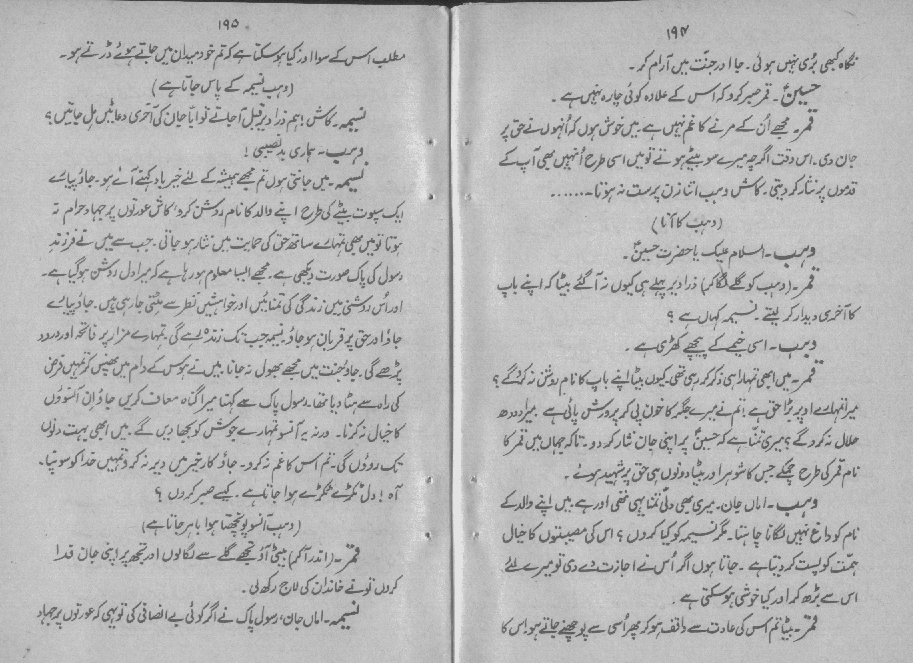 ۱۹۴
نگاہ کبھی بُری نہیں ہوئی۔ جا اور جنّت میں آرام کر۔
حسینؑ۔ قمر صبر کرو کہ اس کے علاوہ کوئی چارہ نہیں ہے۔
قمر۔ مجھے اُن کے مرنے کا غم نہیں ہے۔ میں خوش ہوں کہ اُنہوں نے حق پر
جان دی۔ اس وقت اگرچہ میرے سو بیٹے ہوتے تو میں اسی طرح اُنہیں بھی آپ کے
قدموں پر نثار کر دیتی۔ کاش وہب اتنا زن پرست نہ ہوتا۔......
(وہب کا آنا)
وہب۔ السلام علیک یا حضرت حسینؑ۔
قمر۔ (وہب کو گلے لگا کر) ذرا دیر پہلے ہی کیوں نہ آ گئے بیٹا کہ اپنے باپ
کا آخری دیدار کر لیتے۔ نسیمہ کہاں ہے؟
وہب۔ اسی خیمے کے پیچھے کھڑی ہے۔
قمر۔ میں ابھی تمہارا ہی ذکر کر رہی تھی۔ کیوں بیٹا اپنے باپ کا نام روشن نہ کرو گے؟
میرا تمہارے اوپر بڑا حق ہے! تم نے میرے جگر کا خون پی کر پرورش پائی ہے۔ میرا دودھ
حلال نہ کرو گے؟ میری تمنّا ہے کہ حسینؑ پر اپنی جان نثار کر دو۔ تاکہ جہاں میں قمر کا
نام قمر کی طرح چمکے جس کا شوہر اور بیٹا دونوں ہی حق پر شہید ہوئے۔
وہب۔ اماں جان۔ میری بھی دلی تمنّا یہی تھی اور ہے میں اپنے والد کے
نام کو داغ نہیں لگانا چاہتا۔ مگر نسیمہ کو کیا کروں؟ اس کی مصیبتوں کا خیال
ہمّت کو پست کر دیتا ہے۔ جاتا ہوں اگر اُس نے اجازت دے دی تو میرے لئے
اس سے بڑھ کر اور کیا خوشی ہو سکتی ہے۔
قمر۔ بیٹا تم اس کی عادت سے واقف ہو کر پھر اُسی سے پوچھنے جاتے ہو اس کا
۱۹۵
مطلب اس کے سوا اور کیا ہو سکتا ہے کہ تم خود میدان میں جاتے ہوئے ڈرتے ہو۔
(وہب نسیمہ کے پاس جاتا ہے)
نسیمہ۔ کاش! ہم ذرا دیر قبل آ جاتے تو ابّا جان کی آخری دعائیں مل جاتیں؟
وہب۔ ہماری بدنصیبی!
نسیمہ۔ میں جانتی ہوں تم مجھے ہمیشہ کے لئے خیرباد کہنے آئے ہو۔ جاؤ پیارے
ایک سپوت بیٹے کی طرح اپنے والد کا نام روشن کرو! کاش عورتوں پر جہاد حرام نہ
ہوتا تو میں بھی تمہارے ساتھ حق کی حمایت میں نثار ہو جاتی۔ جب سے میں نے فرزندِ
رسول کی پاک صورت دیکھی ہے۔ مجھے ایسا معلوم ہو رہا ہے کہ میرا دل روشن ہو گیا ہے۔
اور اُس روشنی میں زندگی کی تمنائیں اور خواہشیں نظر سے مٹتی جا رہی ہیں۔ جاؤ پیارے
جاؤ اور حق پر قربان ہو جاؤ۔ نسیمہ جب تک زندہ رہے گی۔ تمہارے مزار پر فاتحہ اور درود
پڑھے گی۔ جاؤ جنت میں مجھے بھول نہ جانا۔ میں نے ہوس کے دام میں پھنس کر تمہیں فرض
کی راہ سے ہٹا دیا تھا۔ رسول پاک سے کہنا میرا گناہ معاف کریں جاؤ اِن آنسوؤں
کا خیال نہ کرنا۔ ورنہ یہ آنسو تمہارے جوش کو بجھا دیں گے۔ میں ابھی بہت دنوں
تک روؤں گی۔ تم اس کا غم نہ کرو۔ جاؤ کارِ خیر میں دیر نہ کرو تمہیں خدا کو سونپا۔
آہ! دل ٹکڑے ٹکڑے ہوا جاتا ہے۔ کیسے صبر کروں؟
(وہب آنسو پونچھتا ہوا باہر جاتا ہے)
قمر۔ (اندر آ کر) بیٹی آؤ تجھے گلے سے لگا لوں اور تجھ پر اپنی جان فدا
کروں تو نے خاندان کی لاج رکھ لی۔
نسیمہ۔ اماں جان، رسول پاک نے اگر کوئی بے انصافی کی تو یہی کہ عورتوں پر جہاد